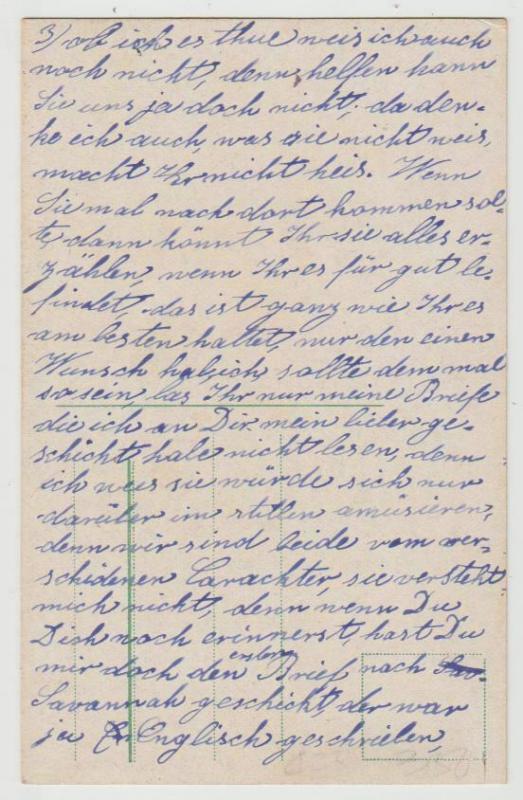 3) ob ich es thue weis ich auch
noch nicht, denn helfen kann
Sie uns ja doch nicht, da den-
ke ich auch, was sie nicht weis,
macht Ihr nicht heis. Wenn
Sie mal nach dort kommen sol-
te, dann könnt Ihr sie alles er-
zählen, wenn Ihr es für gut be-
findet, das ist ganz wie Ihr es
am besten haltet, nur den einen
Wunsch hab ich, sollte dem mal
so sein, las Ihr nur meine Briefe
die ich an Dir mein lieber ge-
schickt habe nicht lesen, denn
ich weis sie würde sich nur
darüber im stillen amüsieren,
denn wir sind beide vom ver-
schidenen Carachter, sie versteht
mich nicht, denn wenn Du
Dich noch erinnerst, hast Du
mir doch den ersten Brief nach
Savannah geschickt, der war
ja Englisch geschrieben,